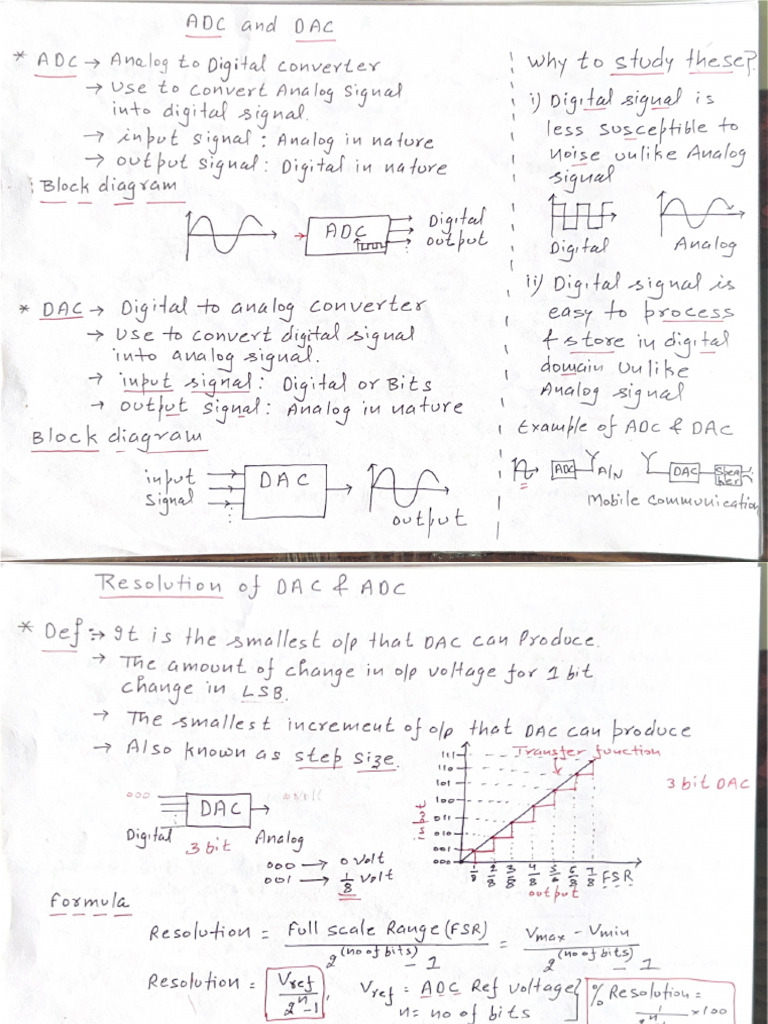 ADC and DAC
* ADC → Analog to Digital converter
→ Use to convert Analog Signal
into digital signal.
→ input signal : Analog in nature
→ output signal : Digital in nature
Block diagram
ADC
Digital
output
* DAC → Digital to analog converter
→ Use to convert digital signal
into analog signal.
→ input signal : Digital or Bits
→ output signal : Analog in nature
Block diagram
input
signal
DAC
output
Why to study these?
i) Digital signal is
less susceptible to
noise unlike Analog
signal
Digital
Analog
ii) Digital signal is
easy to process
& store in digital
domain unlike
Analog signal
Example of ADC & DAC
ADC
A/N
DAC
Spea
ker
Mobile communication
Resolution of DAC & ADC
* Def :→ It is the smallest o/p that DAC can Produce.
→ The amount of change in o/p voltage for 1 bit
change in LSB.
→ The smallest increment of o/p that DAC can produce
→ Also known as step size.
000
DAC
Digital
3 bit
Analog
000 → 0 volt
001 → 1/8 volt
Transfer function
3 bit DAC
111
110
101
100
011
010
001
000
1/8 2/8 3/8 4/8 5/8 6/8 7/8 FSR
output
Formula
Resolution = Full scale Range (FSR) / 2^(no of bits) - 1 = Vmax - Vmin / 2^(no of bits) - 1
Resolution = Vref / 2^n - 1 , Vref = ADC Ref voltage
n = no of bits
% Resolution =
1 / 2^n - 1 × 100